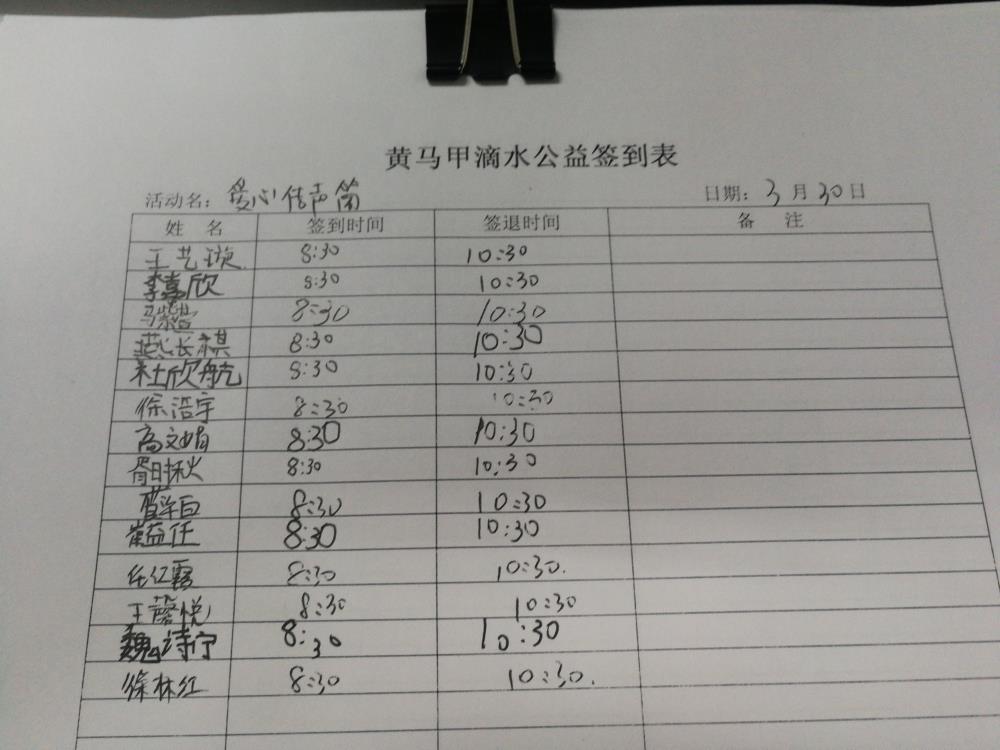 黄马甲滴水公益签到表
活动名：爱心传声筒 日期：3月30日
姓名 签到时间 签退时间 备注
王艺璇 8:30 10:30
李嘉欣 8:30 10:30
8:30 10:30
燕长祺 8:30 10:30
杜欣航 8:30 10:30
徐浩宇 8:30 10:30
高文娟 8:30 10:30
8:30 10:30
8:30 10:30
崔益任 8:30 10:30
任红露 8:30 10:30.
王馨悦 8:30 10:30
魏诗宁 8:30 10:30
徐林红 8:30 10:30.